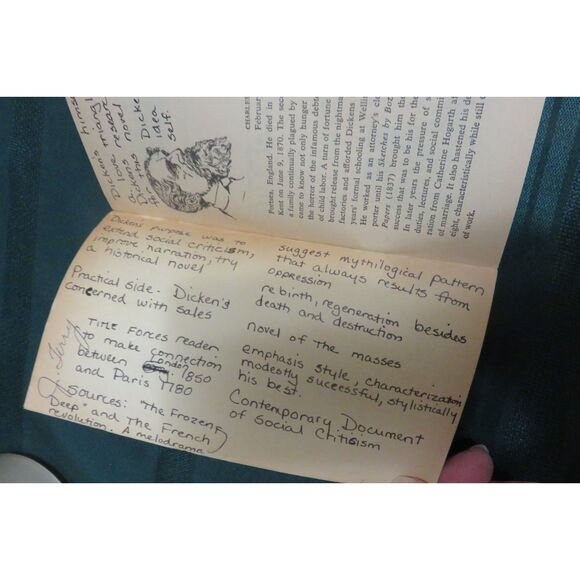 Dicken's himse
Dicken's triangl
love researc
Dickens novel
idea
Dickens Dicke
self.
CHARLES
Februar
Portsea, England. He died in
Kent on June 9, 1870. The seco
a family continually plagued by
came to know not only hunger
the horror of the infamous debt
of child labor. A turn of fortune
brought release from the nightmar
factories and afforded Dickens
years' formal schooling at Wellin
He worked as an attorney's cle
porter until his Sketches by Boz
Papers (1837) brought him the
success that was to be his for the
In later years the pressure of s
duties, lectures, and social commit
ration from Catherine Hogarth af
of marriage. It also hastened his de
eight, characteristically while still e
of work.
Dickens purpose was to
extend social criticism,
improve narration, try
a historical novel
Practical side - Dicken's
concerned with sales
Title Forces reader
to make connection
between London 1850
and Paris 1780
Sources: "The Frozen
Deep" and The French
revolution. A melodrama
J. Terry
suggest mythilogical pattern
that always results from
oppression
rebirth, regeneration besides
death and destruction
novel of the masses
emphasis style, characterization
modestly successful, stylistically
his best.
Contemporary Document
of Social Critisism